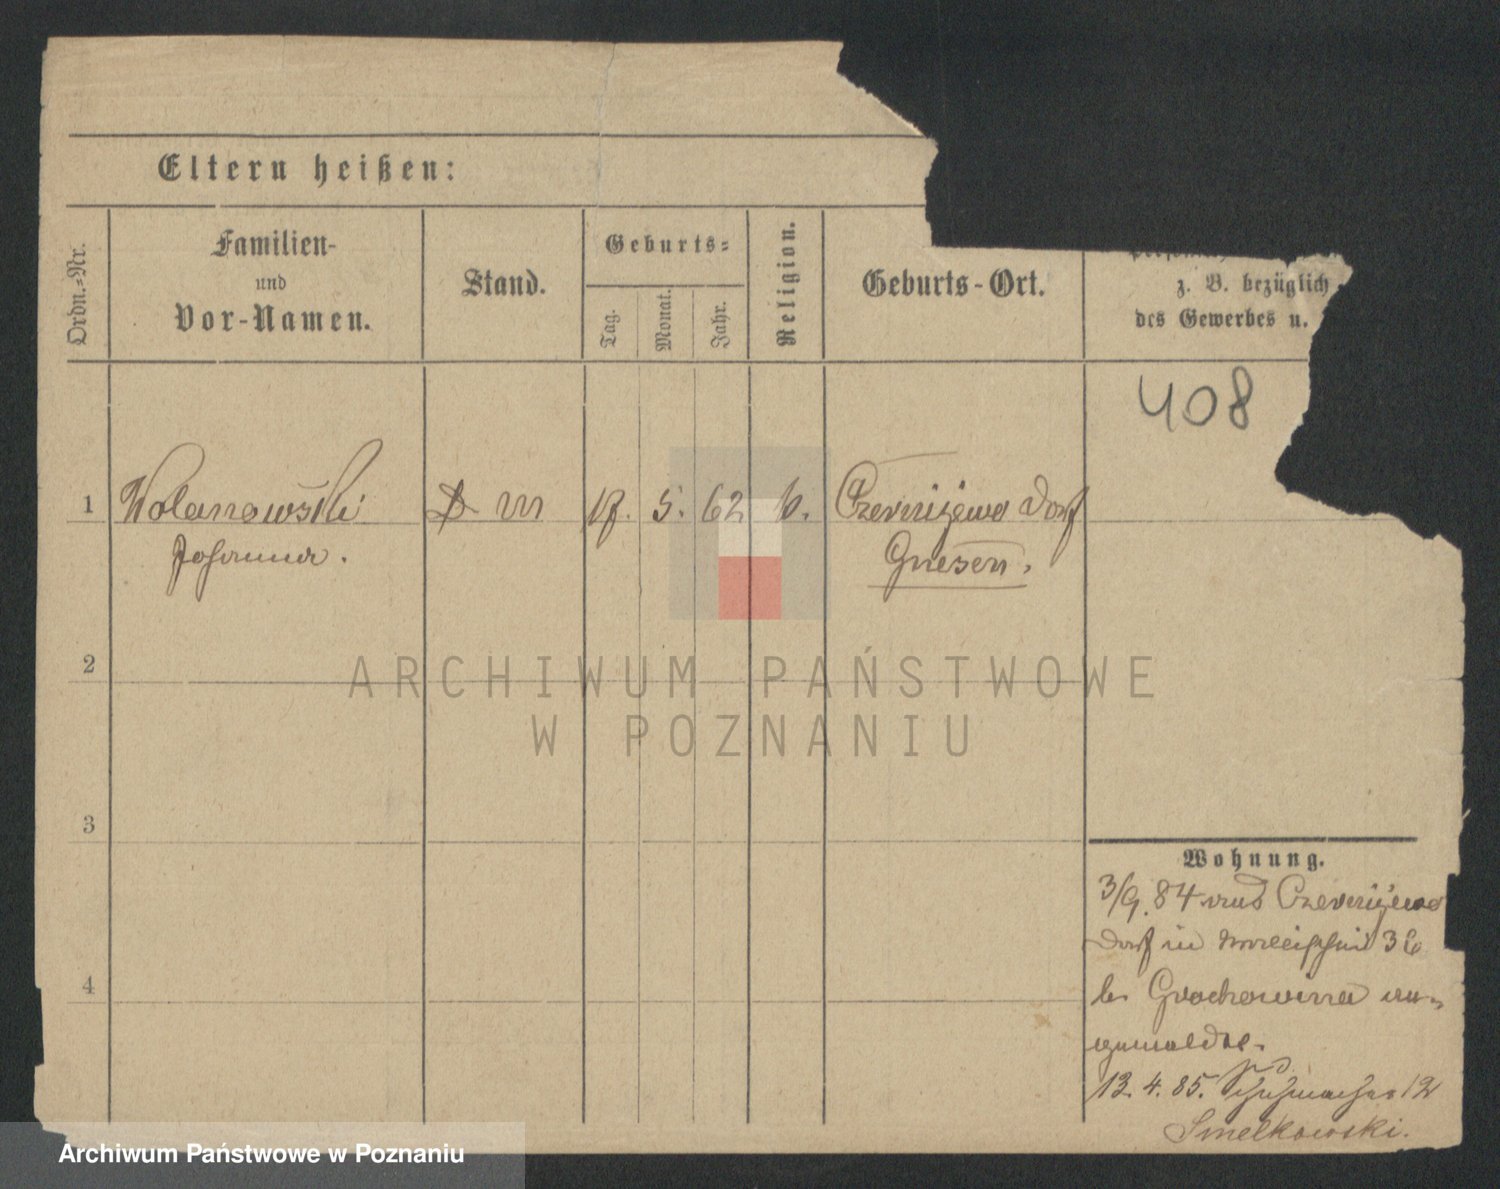 Eltern heißen:
Ordn.=Nr.
Familien-
und
Vor-Namen.
Stand.
Geburts=
Tag.
Monat.
Jahr.
Religion.
Geburts-Ort.
z. B. bezüglich
des Gewerbes u.
408
1
Wolanowski
Johanna.
5. 62
Czerniżewo Dorf
Gnesen.
2
3
4
Wohnung.
3/9. 84 aus Czerniżewo
Dorf in
Grochowina an-
gemeldet.
13. 4. 85. Schuhmacher 12
Smelkowski.
ARCHIWUM PAŃSTWOWE
W POZNANIU
Archiwum Państwowe w Poznaniu